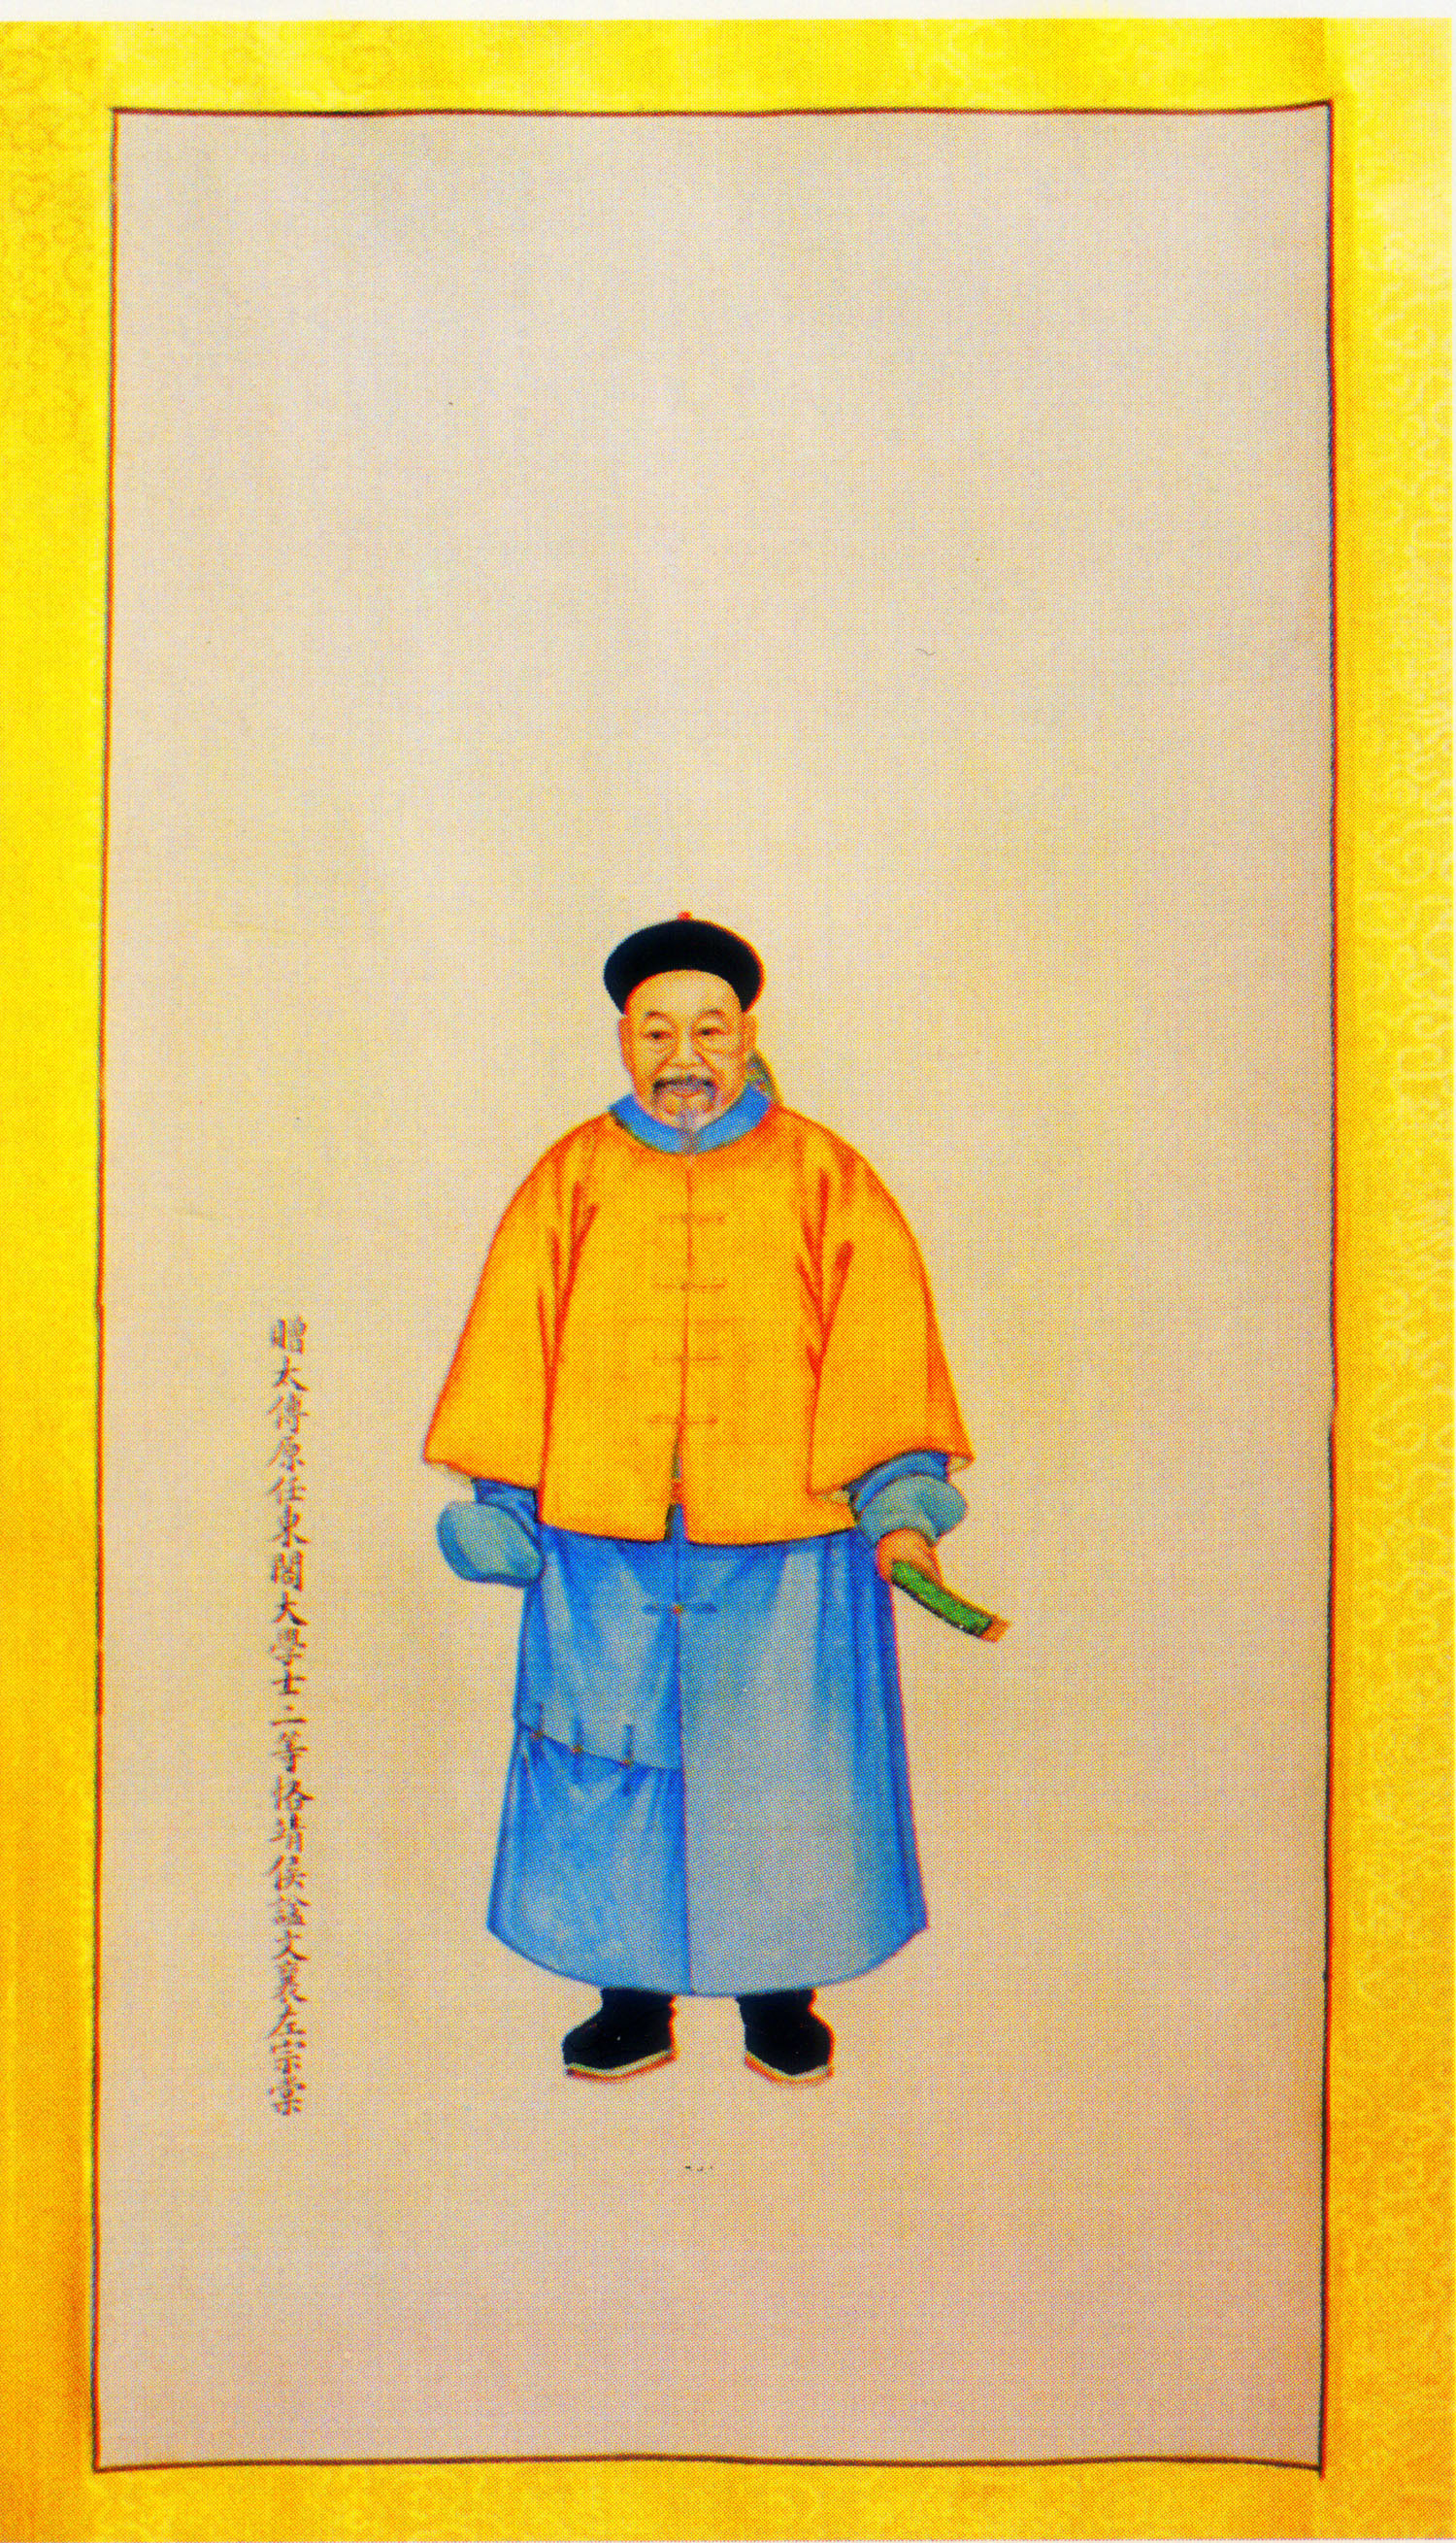 贈太傅原任東閣大學士二等恪靖侯諡文襄左宗棠